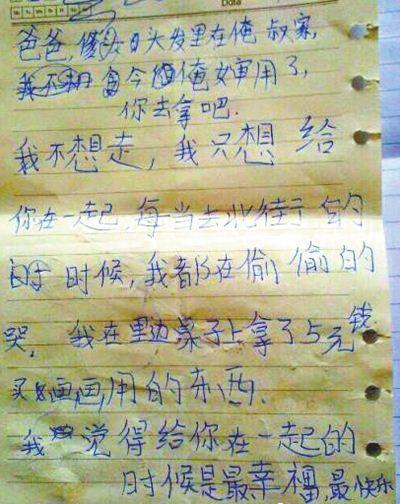 爸爸，头发里在俺叔家，
今俺女审用了，
你去拿吧．
我不想走，我只想给
你在一起，每当去北街子的
时候，我都在偷偷的
哭，我在里边桌子上拿了5元钱
买画画用的东西．
我觉得给你在一起的
时候是最幸福，最快乐